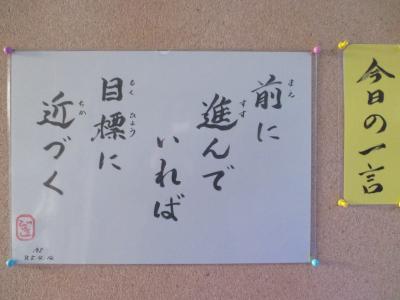 今日の一言
前に
進んで
いれば
目標に
近づく
まえ
すす
もく
ひょう
ちか